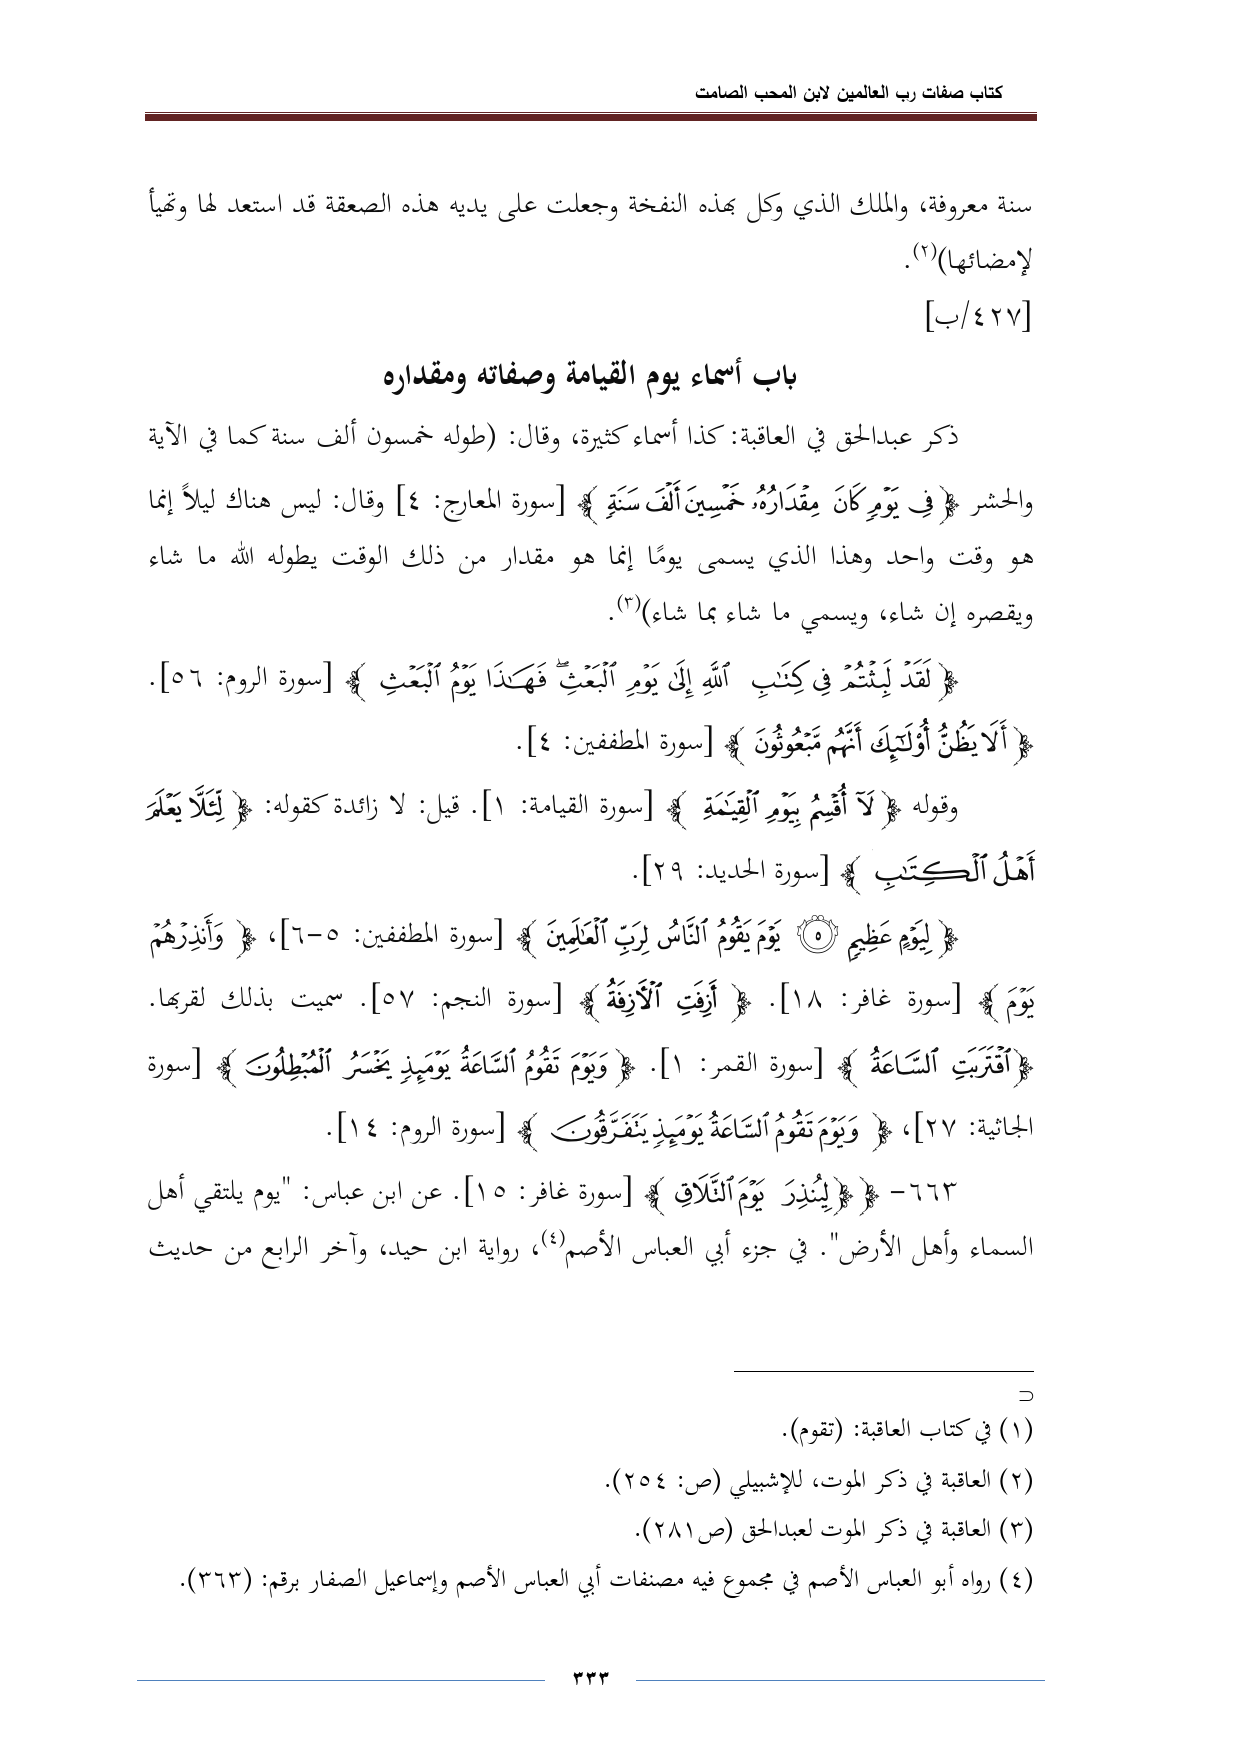 كتاب صفات رب العالمين لابن المحب الصامت
سنة معروفة، والملك الذي وكل بهذه النفخة وجعلت على يديه هذه الصعقة قد استعد لها وتهيأ
لإمضائها)(٢).
[٤٢٧/ب]
باب أسماء يوم القيامة وصفاته ومقداره
ذكر عبدالحق في العاقبة: كذا أسماء كثيرة، وقال: (طوله خمسون ألف سنة كما في الآية
والحشر ﴿ فِي يَوْمٍ كَانَ مِقْدَارُهُۥ خَمْسِينَ أَلْفَ سَنَةٍ ﴾ [سورة المعارج: ٤] وقال: ليس هناك ليلاً إنما
هو وقت واحد وهذا الذي يسمى يومًا إنما هو مقدار من ذلك الوقت يطوله الله ما شاء
ويقصره إن شاء، ويسمي ما شاء بما شاء)(٣).
﴿ لَقَدْ لَبِثْتُمْ فِي كِتَٰبِ ٱللَّهِ إِلَىٰ يَوْمِ ٱلْبَعْثِۖ فَهَٰذَا يَوْمُ ٱلْبَعْثِ ﴾ [سورة الروم: ٥٦].
﴿ أَلَا يَظُنُّ أُوْلَٰٓئِكَ أَنَّهُم مَّبْعُوثُونَ ﴾ [سورة المطففين: ٤].
وقوله ﴿ لَآ أُقْسِمُ بِيَوْمِ ٱلْقِيَٰمَةِ ﴾ [سورة القيامة: ١]. قيل: لا زائدة كقوله: ﴿ لِّئَلَّا يَعْلَمَ
أَهْلُ ٱلْكِتَٰبِ ﴾ [سورة الحديد: ٢٩].
﴿ لِيَوْمٍ عَظِيمٍ ٥ يَوْمَ يَقُومُ ٱلنَّاسُ لِرَبِّ ٱلْعَٰلَمِينَ ﴾ [سورة المطففين: ٥-٦]، ﴿ وَأَنذِرْهُمْ
يَوْمَ ﴾ [سورة غافر: ١٨]. ﴿ أَزِفَتِ ٱلْأَزِفَةُ ﴾ [سورة النجم: ٥٧]. سميت بذلك لقربها.
﴿ ٱقْتَرَبَتِ ٱلسَّاعَةُ ﴾ [سورة القمر: ١]. ﴿ وَيَوْمَ تَقُومُ ٱلسَّاعَةُ يَوْمَئِذٍ يَخْسَرُ ٱلْمُبْطِلُونَ ﴾ [سورة
الجاثية: ٢٧]، ﴿ وَيَوْمَ تَقُومُ ٱلسَّاعَةُ يَوْمَئِذٍ يَتَفَرَّقُونَ ﴾ [سورة الروم: ١٤].
٦٦٣- ﴿ ﴿ لِيُنذِرَ يَوْمَ ٱلتَّلَاقِ ﴾ [سورة غافر: ١٥]. عن ابن عباس: "يوم يلتقي أهل
السماء وأهل الأرض". في جزء أبي العباس الأصم(٤)، رواية ابن حيد، وآخر الرابع من حديث
⊃
(١) في كتاب العاقبة: (تقوم).
(٢) العاقبة في ذكر الموت، للإشبيلي (ص: ٢٥٤).
(٣) العاقبة في ذكر الموت لعبدالحق (ص٢٨١).
(٤) رواه أبو العباس الأصم في مجموع فيه مصنفات أبي العباس الأصم وإسماعيل الصفار برقم: (٣٦٣).
٣٣٣